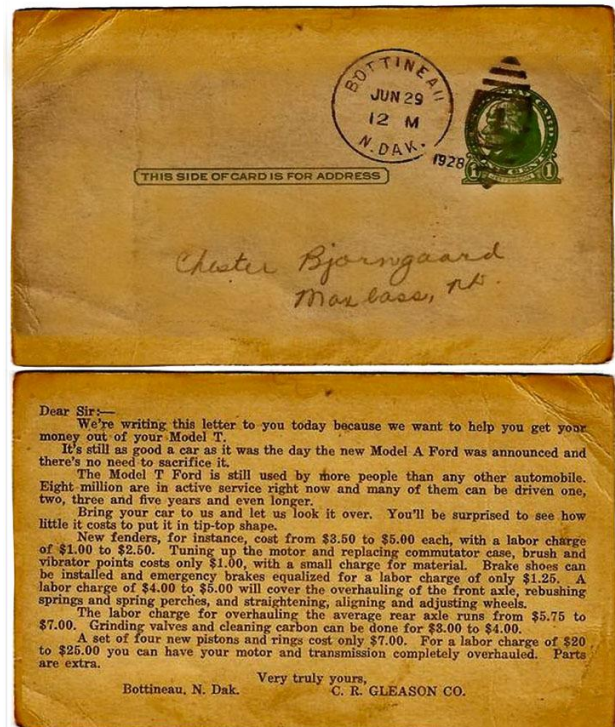 BOTTINEAU
JUN 29
12 M
N. DAK.
1928
1 1
THIS SIDE OF CARD IS FOR ADDRESS
Chester Bjorngaard
Maxbass, ND.
Dear Sir:—
We're writing this letter to you today because we want to help you get your
money out of your Model T.
It's still as good a car as it was the day the new Model A Ford was announced and
there's no need to sacrifice it.
The Model T Ford is still used by more people than any other automobile.
Eight million are in active service right now and many of them can be driven one,
two, three and five years and even longer.
Bring your car to us and let us look it over. You'll be surprised to see how
little it costs to put it in tip-top shape.
New fenders, for instance, cost from $3.50 to $5.00 each, with a labor charge
of $1.00 to $2.50. Tuning up the motor and replacing commutator case, brush and
vibrator points costs only $1.00, with a small charge for material. Brake shoes can
be installed and emergency brakes equalized for a labor charge of only $1.25. A
labor charge of $4.00 to $5.00 will cover the overhauling of the front axle, rebushing
springs and spring perches, and straightening, aligning and adjusting wheels.
The labor charge for overhauling the average rear axle runs from $5.75 to
$7.00. Grinding valves and cleaning carbon can be done for $3.00 to $4.00.
A set of four new pistons and rings cost only $7.00. For a labor charge of $20
to $25.00 you can have your motor and transmission completely overhauled. Parts
are extra.
Very truly yours,
Bottineau, N. Dak. C. R. GLEASON CO.